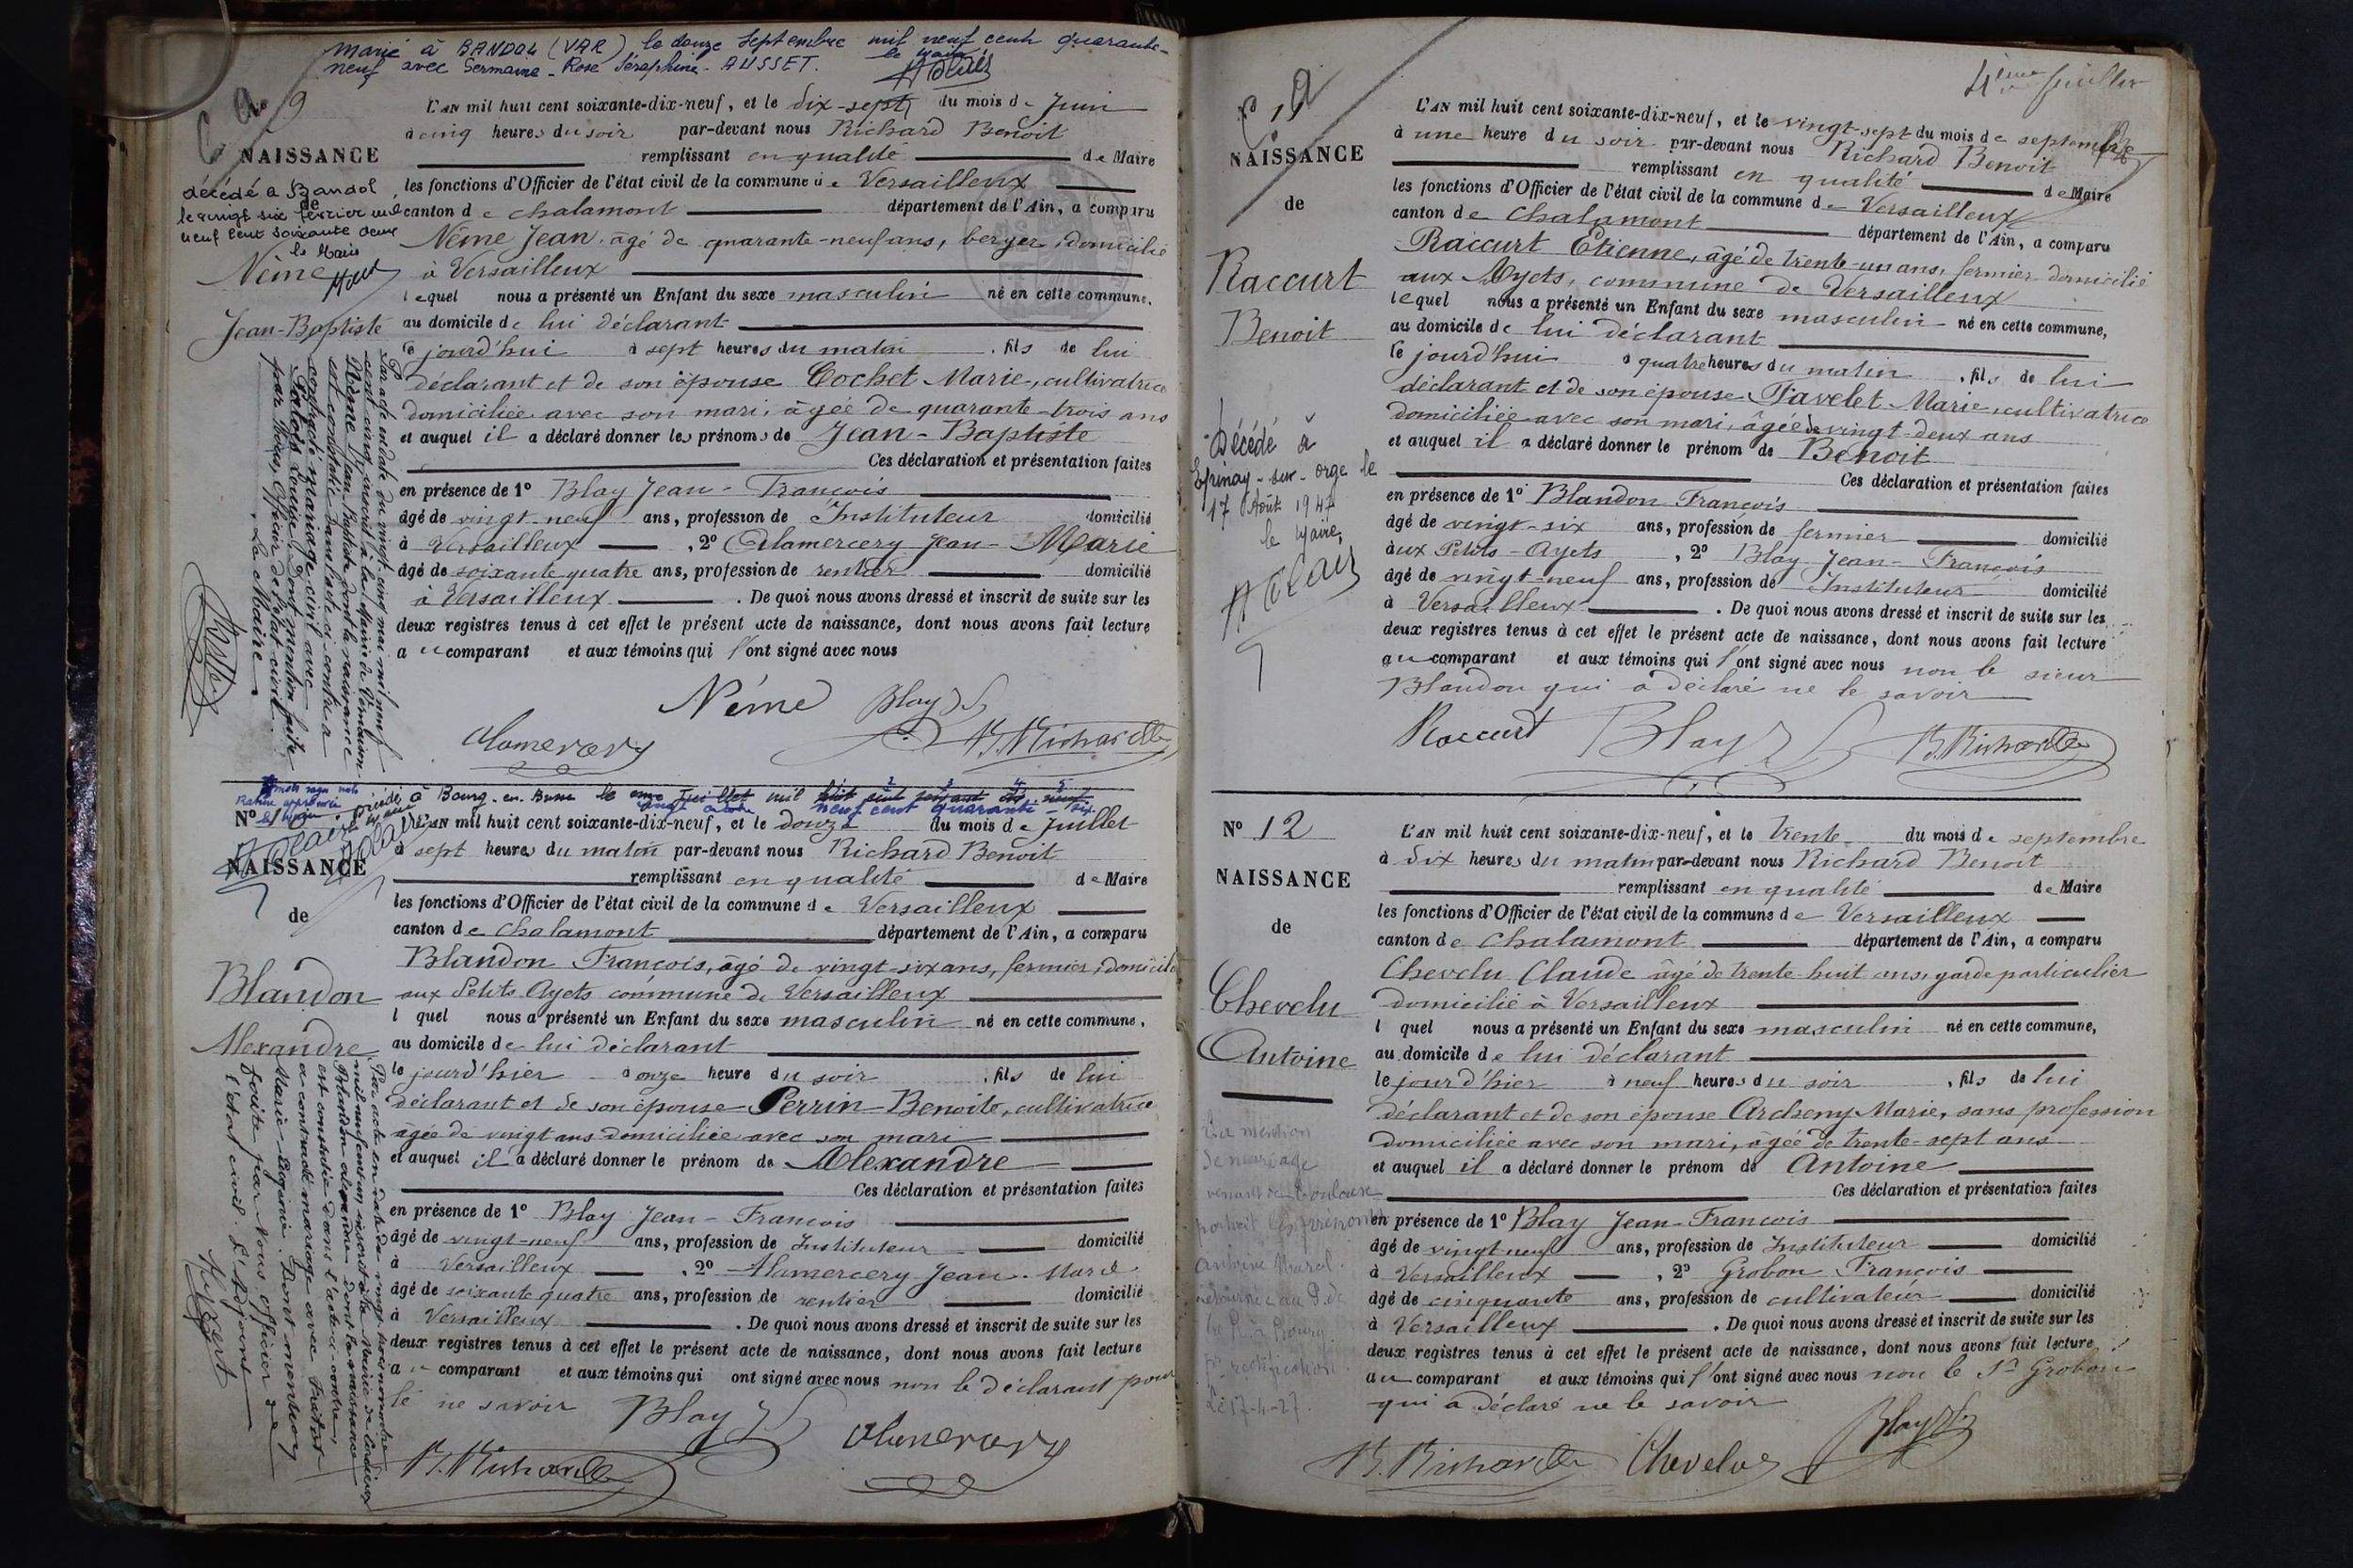 Marié à BANDOL (VAR) le douze Septembre mil neuf cent quarante-
neuf avec Germaine-Rose Séraphine-AUSSET. le Maire
9
NAISSANCE
décédé à Bandol
le vingt six février mil
neuf cent soixante deux
le Maire
Nême
Jean-Baptiste
L'AN mil huit cent soixante-dix-neuf, et le dix-sept du mois de Juin
à cinq heures du soir par-devant nous Richard Benoit
remplissant en qualité de Maire
les fonctions d'Officier de l'état civil de la commune de Versailleux
canton de Chalamont département de l'Ain, a comparu
Nême Jean, âgé de quarante-neuf ans, berger, domicilié
à Versailleux
lequel nous a présenté un Enfant du sexe masculin né en cette commune,
au domicile de lui déclarant
le jourd'hui à sept heures du matin, fils de lui
déclarant et de son épouse Cochet Marie, cultivatrice
domiciliée avec son mari, âgée de quarante-trois ans
et auquel il a déclaré donner les prénoms de Jean-Baptiste
Ces déclaration et présentation faites
en présence de 1º Blay Jean-François
âgé de vingt-neuf ans, profession de Instituteur domicilié
à Versailleux, 2º Alamercery Jean-Marie
âgé de soixante quatre ans, profession de rentier domicilié
à Versailleux. De quoi nous avons dressé et inscrit de suite sur les
deux registres tenus à cet effet le présent acte de naissance, dont nous avons fait lecture
au comparant et aux témoins qui l'ont signé avec nous
Nême Blay
Alamercery B. Richard
Par acte en date du vingt-cinq mai mil neuf
cent cinq, inscrit à la Mairie de
Nême Jean Baptiste dont la naissance
est constatée dans l'acte ci-contre a
contracté mariage civil avec
Louise, dont mention faite
par Nous, Officier de l'état civil.
Le Maire
décédé à Bourg-en-Bresse le onze Juillet mil huit cent soixante dix neuf
vingt neuf cent quarante-six
Nº 10
NAISSANCE
de
Blandon
Alexandre
L'AN mil huit cent soixante-dix-neuf, et le douze du mois de Juillet
à sept heures du matin par-devant nous Richard Benoit
remplissant en qualité de Maire
les fonctions d'Officier de l'état civil de la commune de Versailleux
canton de Chalamont département de l'Ain, a comparu
Blandon François, âgé de vingt-six ans, fermier, domicilié
aux Petits Ayets commune de Versailleux
l quel nous a présenté un Enfant du sexe masculin né en cette commune,
au domicile de lui déclarant
le jourd'hier à onze heure du soir, fils de lui
déclarant et de son épouse Perrin Benoite, cultivatrice
âgée de vingt ans domiciliée avec son mari
et auquel il a déclaré donner le prénom de Alexandre
Ces déclaration et présentation faites
en présence de 1º Blay Jean-François
âgé de vingt-neuf ans, profession de Instituteur domicilié
à Versailleux, 2º Alamercery Jean-Marie
âgé de soixante quatre ans, profession de rentier domicilié
à Versailleux. De quoi nous avons dressé et inscrit de suite sur les
deux registres tenus à cet effet le présent acte de naissance, dont nous avons fait lecture
au comparant et aux témoins qui ont signé avec nous non le déclarant pour
le ne savoir Blay Alamercery
B. Richard
Par acte en date du vingt-trois novembre
mil neuf cent un, inscrit à la Mairie de
Blandon Alexandre dont la naissance
est constatée dans l'acte ci-contre,
a contracté mariage avec
Marie-Eugénie. Dont mention
faite par Nous officier de
l'état civil. L'Adjoint
4ème feuillet
NAISSANCE
de
Raccurt
Benoit
Décédé à
Epinay-sur-Orge le
17 Août 1947
le Maire,
L'AN mil huit cent soixante-dix-neuf, et le vingt-sept du mois de septembre
à une heure du soir par-devant nous Richard Benoit
remplissant en qualité de Maire
les fonctions d'Officier de l'état civil de la commune de Versailleux
canton de Chalamont département de l'Ain, a comparu
Raccurt Etienne, âgé de trente-un ans, fermier domicilié
aux Ayets, commune de Versailleux
lequel nous a présenté un Enfant du sexe masculin né en cette commune,
au domicile de lui déclarant
le jourd'hui à quatre heures du matin, fils de lui
déclarant et de son épouse Favelet Marie, cultivatrice
domiciliée avec son mari, âgée de vingt-deux ans
et auquel il a déclaré donner le prénom de Benoit
Ces déclaration et présentation faites
en présence de 1º Blandon François
âgé de vingt-six ans, profession de fermier domicilié
aux Petits-Ayets, 2º Blay Jean-François
âgé de vingt-neuf ans, profession de Instituteur domicilié
à Versailleux. De quoi nous avons dressé et inscrit de suite sur les
deux registres tenus à cet effet le présent acte de naissance, dont nous avons fait lecture
au comparant et aux témoins qui l'ont signé avec nous non le sieur
Blandon qui a déclaré ne le savoir
Raccurt Blay B. Richard
Nº 12
NAISSANCE
de
Chevelu
Antoine
La mention
de mariage
venant de Toulouse
portait les prénoms
Antoine Marcel.
retourné au P. de
la R. à Bourg
pr rectification
Le 17-4-27.
L'AN mil huit cent soixante-dix-neuf, et le trente du mois de septembre
à dix heures du matin par-devant nous Richard Benoit
remplissant en qualité de Maire
les fonctions d'Officier de l'état civil de la commune de Versailleux
canton de Chalamont département de l'Ain, a comparu
Chevelu Claude âgé de trente-huit ans, garde particulier
domicilié à Versailleux
l quel nous a présenté un Enfant du sexe masculin né en cette commune,
au domicile de lui déclarant
le jour d'hier à neuf heures du soir, fils de lui
déclarant et de son épouse Archeny Marie, sans profession
domiciliée avec son mari, âgée de trente-sept ans
et auquel il a déclaré donner le prénom de Antoine
Ces déclaration et présentation faites
en présence de 1º Blay Jean-François
âgé de vingt neuf ans, profession de Instituteur domicilié
à Versailleux, 2º Grobon François
âgé de cinquante ans, profession de cultivateur domicilié
à Versailleux. De quoi nous avons dressé et inscrit de suite sur les
deux registres tenus à cet effet le présent acte de naissance, dont nous avons fait lecture
au comparant et aux témoins qui l'ont signé avec nous non le Sr Grobon
qui a déclaré ne le savoir
B. Richard Chevelu Blay